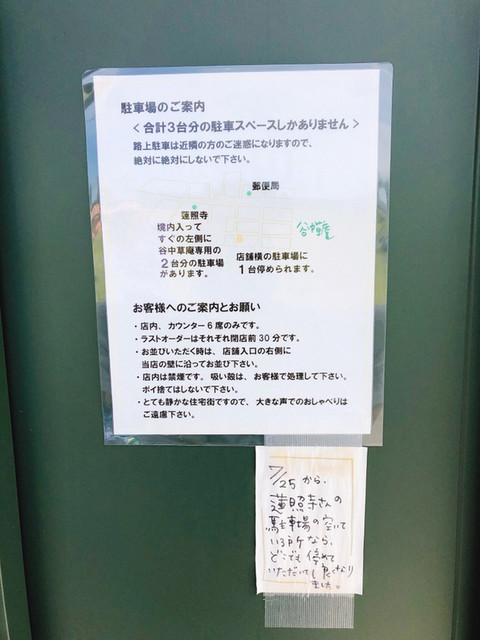 駐車場のご案内
＜合計3台分の駐車スペースしかありません＞
路上駐車は近隣の方のご迷惑になりますので、
絶対に絶対にしないで下さい。
郵便局
蓮照寺
境内入って
すぐの左側に
谷中草庵専用の
2台分の駐車場
があります。
店舗横の駐車場に
1台停められます。
お客様へのご案内とお願い
・店内、カウンター6席のみです。
・ラストオーダーはそれぞれ閉店前30分です。
・お並びいただく時は、店舗入口の右側に
当店の壁に沿ってお並び下さい。
・店内は禁煙です。吸い殻は、お客様で処理して下さい。
ポイ捨てはしないで下さい。
・とても静かな住宅街ですので、大きな声でのおしゃべりは
ご遠慮下さい。
7/25から、
蓮照寺さんの
駐車場の空いて
いる所なら、
どこでも停めて
いただいても良くなり
ました。